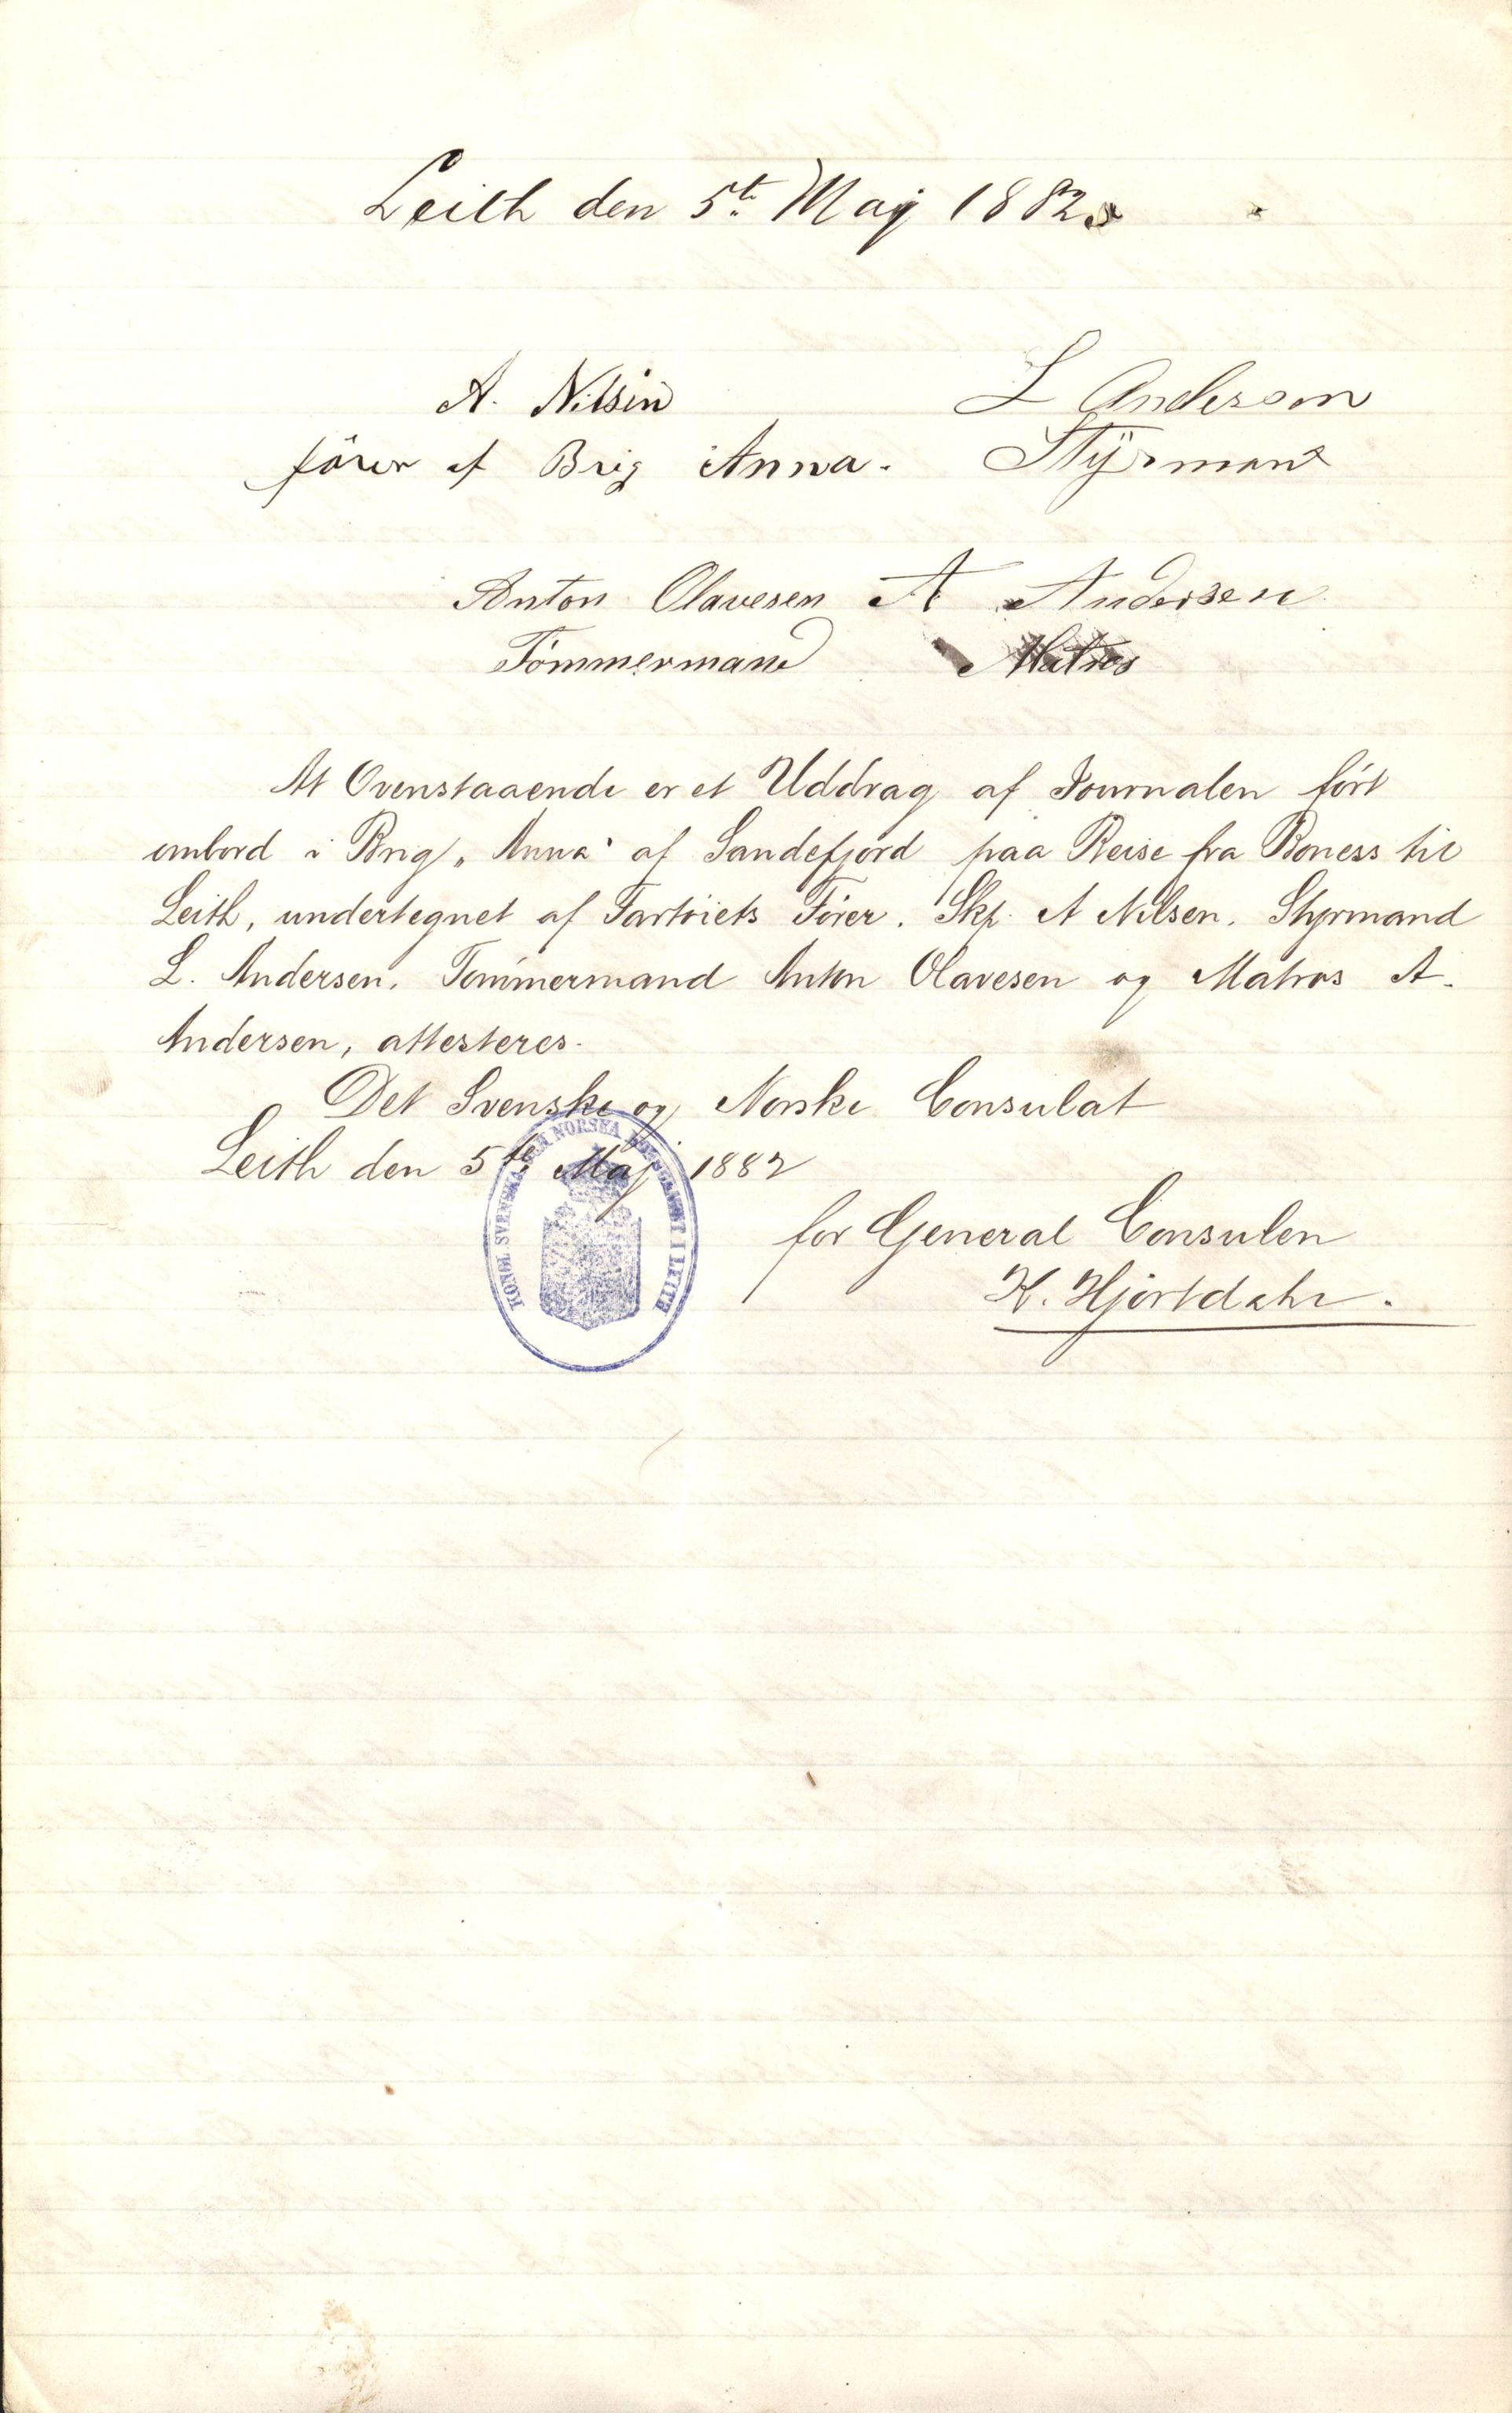 Leith den 5te Maj 1882
A. Nilsen L Anderson
förer af Brig Anna. Styrmand
Anton Olavesen A Andersen
Tömmermand Matros
At Ovenstaaende er et Uddrag af Journalen fört
ombord i Brig „Anna“ af Sandefjord paa Reise fra Boness til
Leith, undertegnet af Fartöiets Förer. Skp. A Nilsen. Styrmand
L. Andersen. Tömmermand Anton Olavesen og Matros A.
Andersen, attesteres.
Det Svenske og Norske Consulat
Leith den 5te Maj 1882
KONGL SVENSKA OCH NORSKA I LEITH
for General Consulen
K. Hjortdahl.